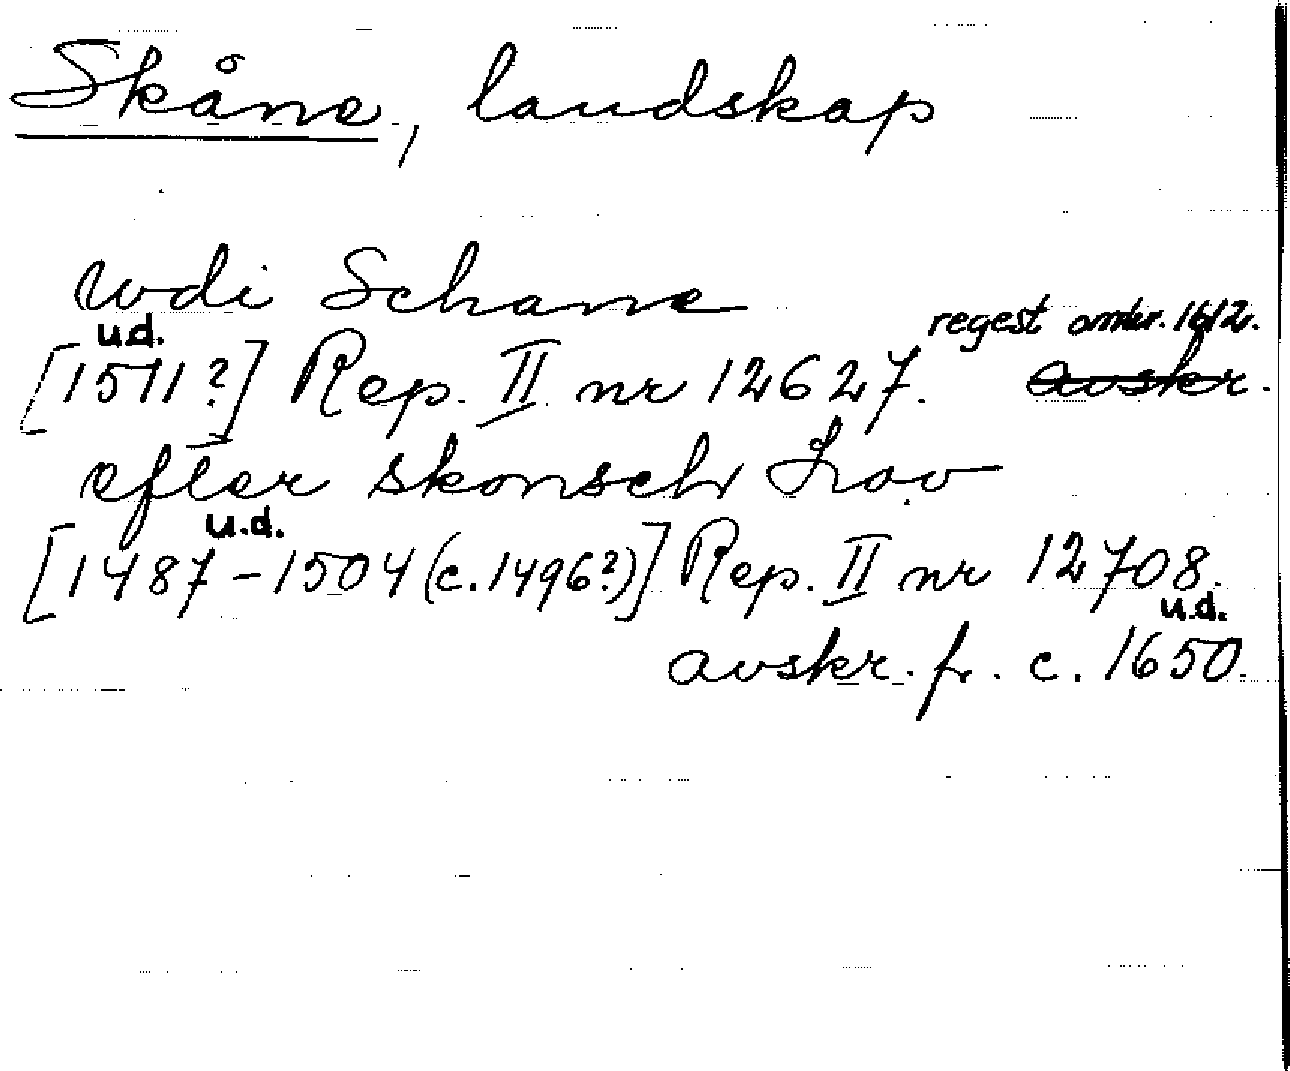 Skåne, landskap
wdi Schane
u.d. regest omkr. 1612.
[1511?] Rep. II nr 12627. avskr.
efter skonsch Lov
u.d.
[1487-1504 (c. 1496?)] Rep. II nr 12708.
u.d.
avskr. fr. c. 1650.